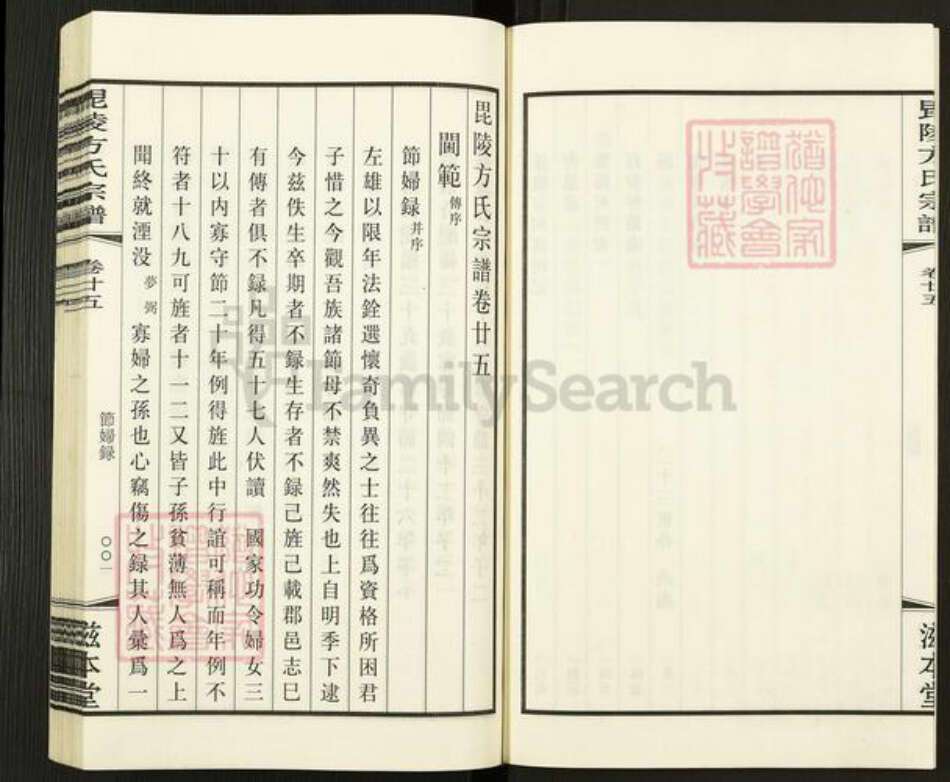 毘陵方氏宗譜
卷廿五
滋本堂
毘陵方氏宗譜卷廿五
閫範 傳序
節婦録 并序
左雄以限年法銓選懷奇負異之士往往爲資格所困君
子惜之今觀吾族諸節母不禁爽然失也上自明季下逮
今兹佚生卒期者不録生存者不録己旌己載郡邑志巳
有傳者俱不録凡得五十七人伏讀 國家功令婦女三
十以内寡守節二十年例得旌此中行誼可稱而年例不
符者十八九可旌者十一二又皆子孫貧薄無人爲之上
聞終就湮没夢弼寡婦之孫也心竊傷之録其人彙爲一
毘陵方氏宗譜
卷廿五
節婦録
〇〇一
滋本堂
FamilySearch